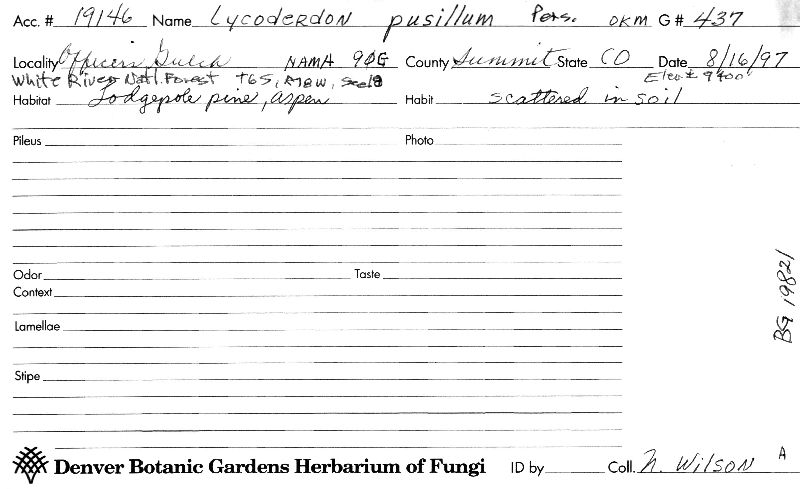 Acc. # 19146 Name Lycoderdon pusillum Pers. OKM G# 437
Locality Officers Gulch NAMA 90G County Summit State CO Date 8/16/97
White River Natl. Forest T6S, R78W, Sec18 Elev ± 9400'
Habitat Lodgepole pine, aspen Habit scattered in soil
Pileus Photo
Odor Taste
Context
Lamellae
Stipe
BG 19821
Denver Botanic Gardens Herbarium of Fungi ID by Coll. N. Wilson A